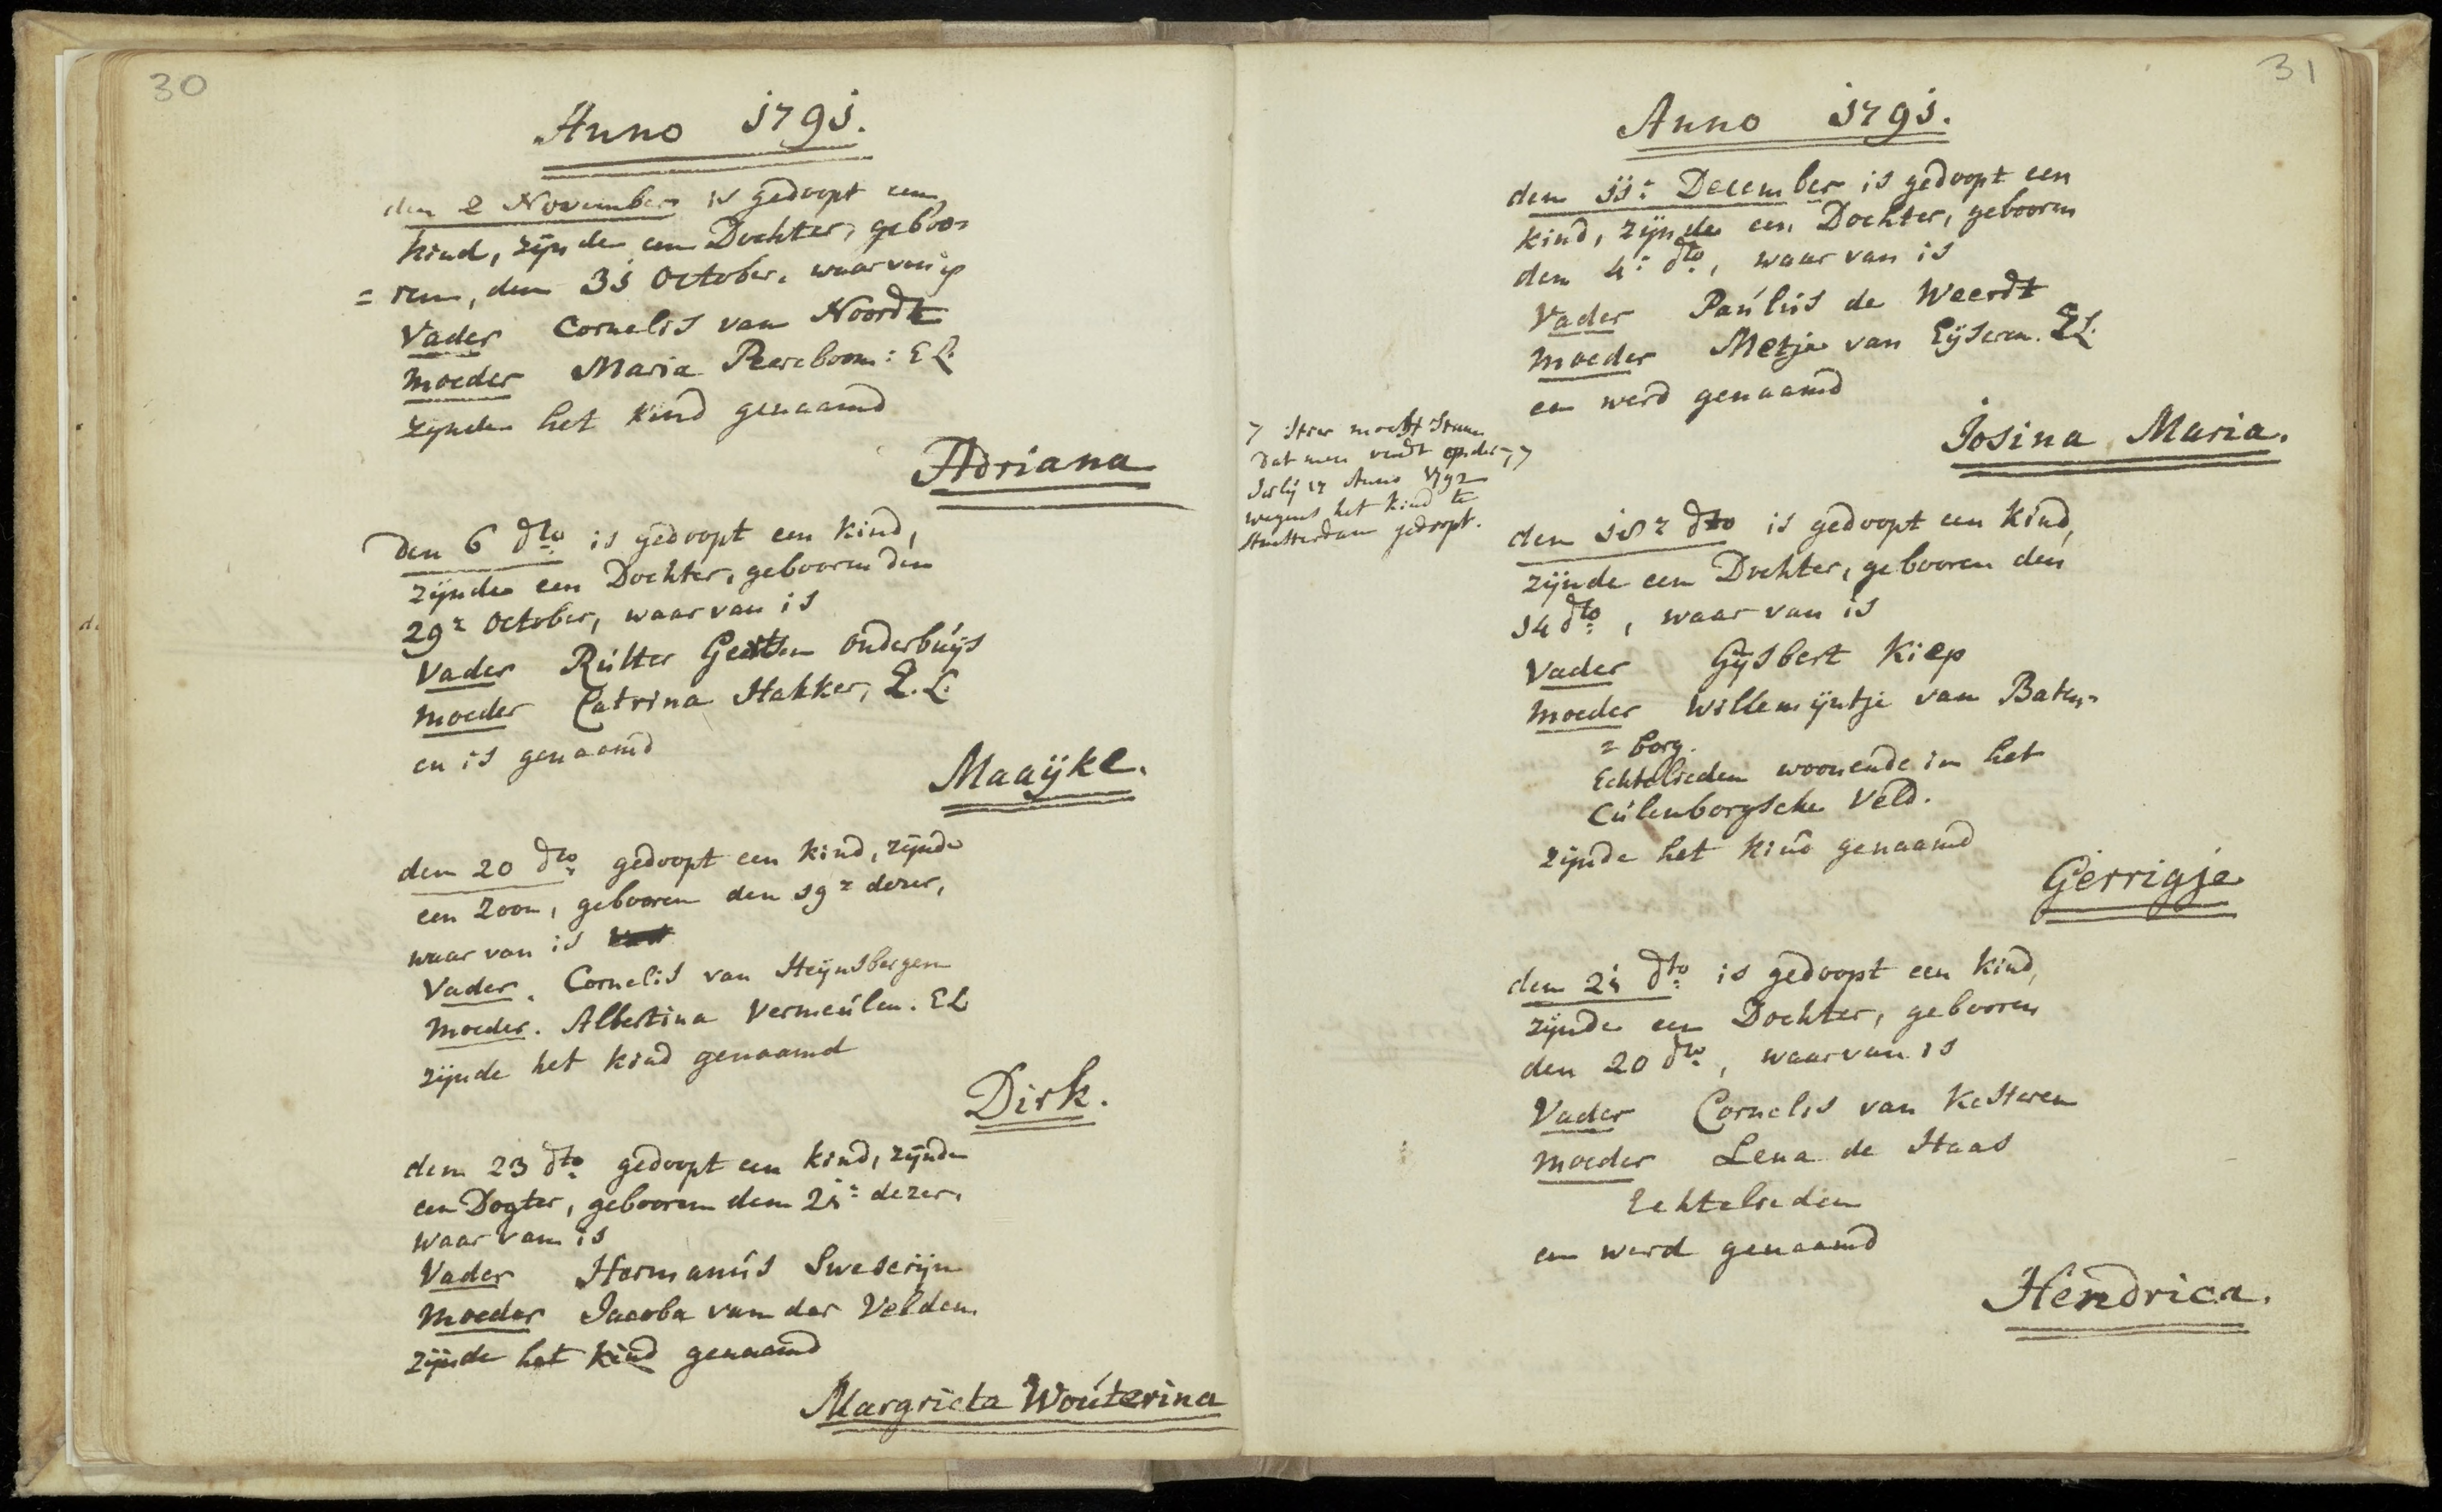 30
Anno 1791.
den 2 November is gedoopt een
kind, zijnde een Dochter, geboo=
=ren, den 31 October, waar van is
Vader Cornelis van Noordt
Moeder Maria Pereboom: E L.
zijnde het kind genaamd
Adriana
Den 6 dto is gedoopt een kind,
zijnde een Dochter, gebooren den
29= October, waar van is
Vader Rútter Geritsen Onderbúijs
Moeder Catrina Hakker, E. L.
en is genaamd
Maaijke.
den 20 dto gedoopt een kind, zijnde
een Zoon, gebooren den 19= dezer,
waar van is
Vader. Cornelis van Heijnsbergen
Moeder. Albertina Vermeúlen. E L
zijnde het kind genaamd
Dirk.
den 23 dto gedoopt een kind, zijnde
een Dogter, gebooren den 21= dezer.
waar van is
Vader Hermanús Sweserijn
Moeder Jacoba van der Velden
zijnde het kind genaamd
Margrieta Woúterina
31
Anno 1791.
den 11= December is gedoopt een
kind, zijnde een Dochter, gebooren
den 4= dto, waar van is
Vader Paúlús de Weerdt
Moeder Metje van Eijseren. E L.
en werd genaamd
Josina Maria.
7 Hier mocht staan
dat men vindt onder 77
Julij 17 Anno 1792
wegens het kind te
Amsterdam gedoopt.
den 18= dto is gedoopt een kind,
zijnde een Dochter, gebooren den
14 dto, waar van is
Vader Gijsbert Kiep
Moeder Willemijntje van Baten=
=borg.
Echtelieden woonende in het
Cúlenborgsche Veld.
zijnde het kind genaamd
Gerrigje
den 21 dto is gedoopt een kind,
zijnde een Dochter, gebooren
den 20 dto, waar van is
Vader Cornelis van Kesteren
Moeder Lena de Haas
Echtelieden
en werd genaamd
Hendrica.